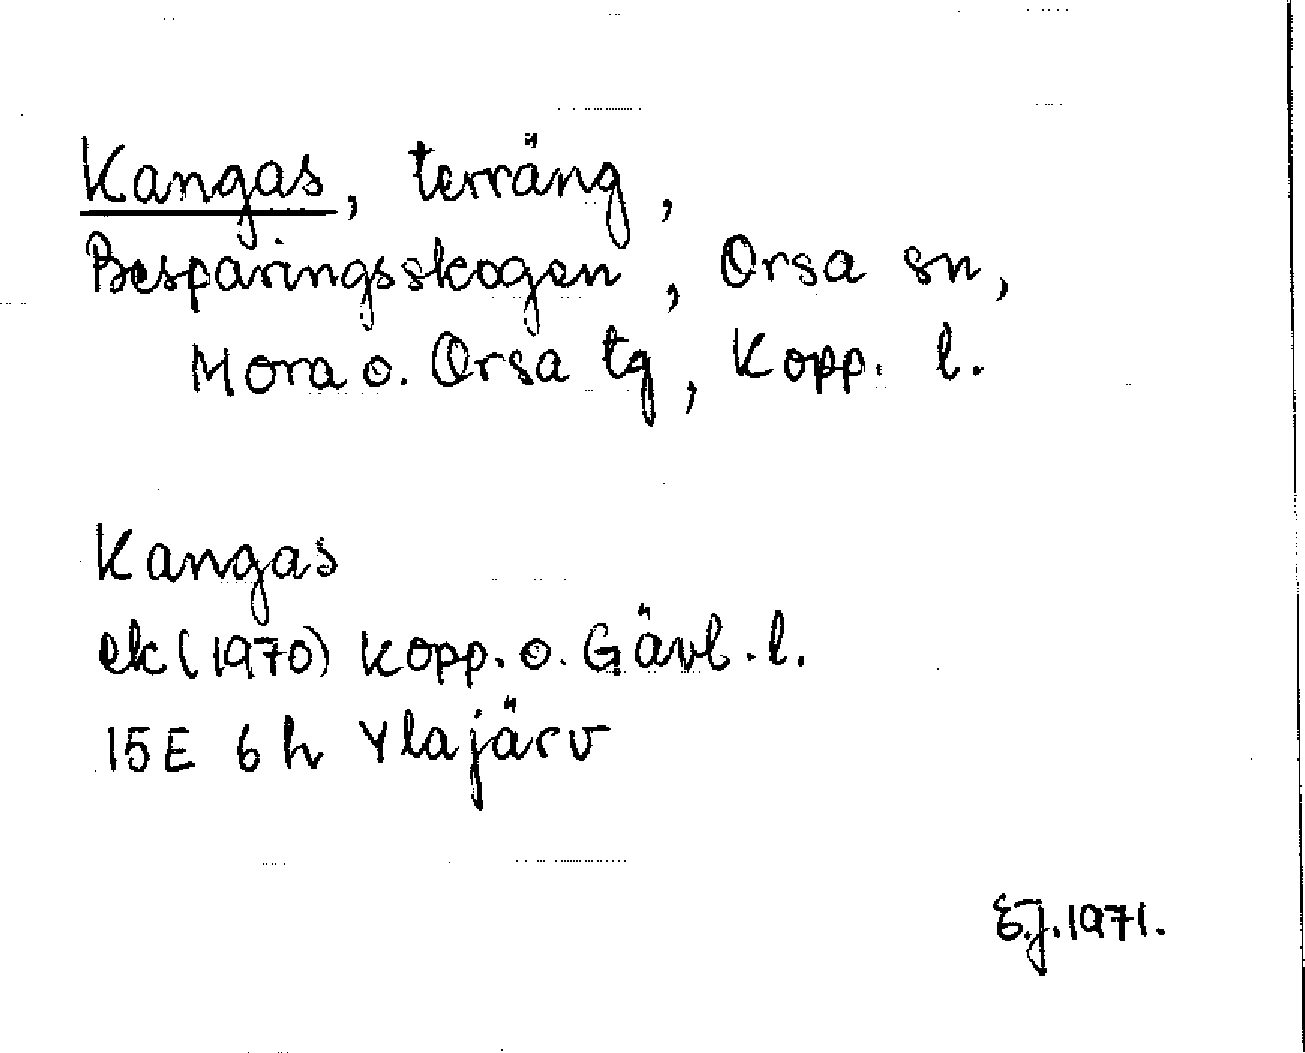 Kangas, terräng,
Besparingsskogen, Orsa sn,
Mora o. Orsa tg, Kopp. l.
Kangas
ek (1970) Kopp. o. Gävl. l.
15E 6h Ylajärv
E.J. 1971.